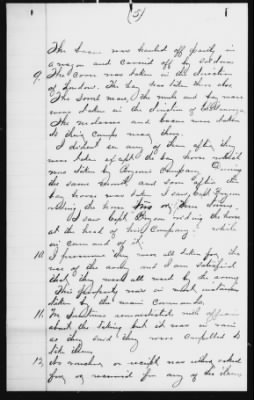 (5)
The bacon was hauled off partly in
a wagon and carried off by soldiers
9. The corn was taken in the direction
of London. The hay was taken there also
The sorrel mare, the mule and bay mare
were taken in the direction of
The molasses and bacon were taken
to their camps near there.
I did not see any of them after they
were taken except the bay horse which
was taken by Bryons Company. During
the same month and soon after the
bay horse was taken I saw Capt Bryon
riding the horse two or three times.
I saw Capt Bryon riding the horse
at the head of his Company - while
in command of it.
10. I presume they were all taken for the
use of the army and I am satisfied
that they were all used by the army
The property was in most instances
taken by the main Commands.
11. Dr. Sometimes remonstrated with officers
about the taking but it was in vain
as they said they were compelled to
take them.
12. No voucher or receipt was either asked
for, or received for any of the items